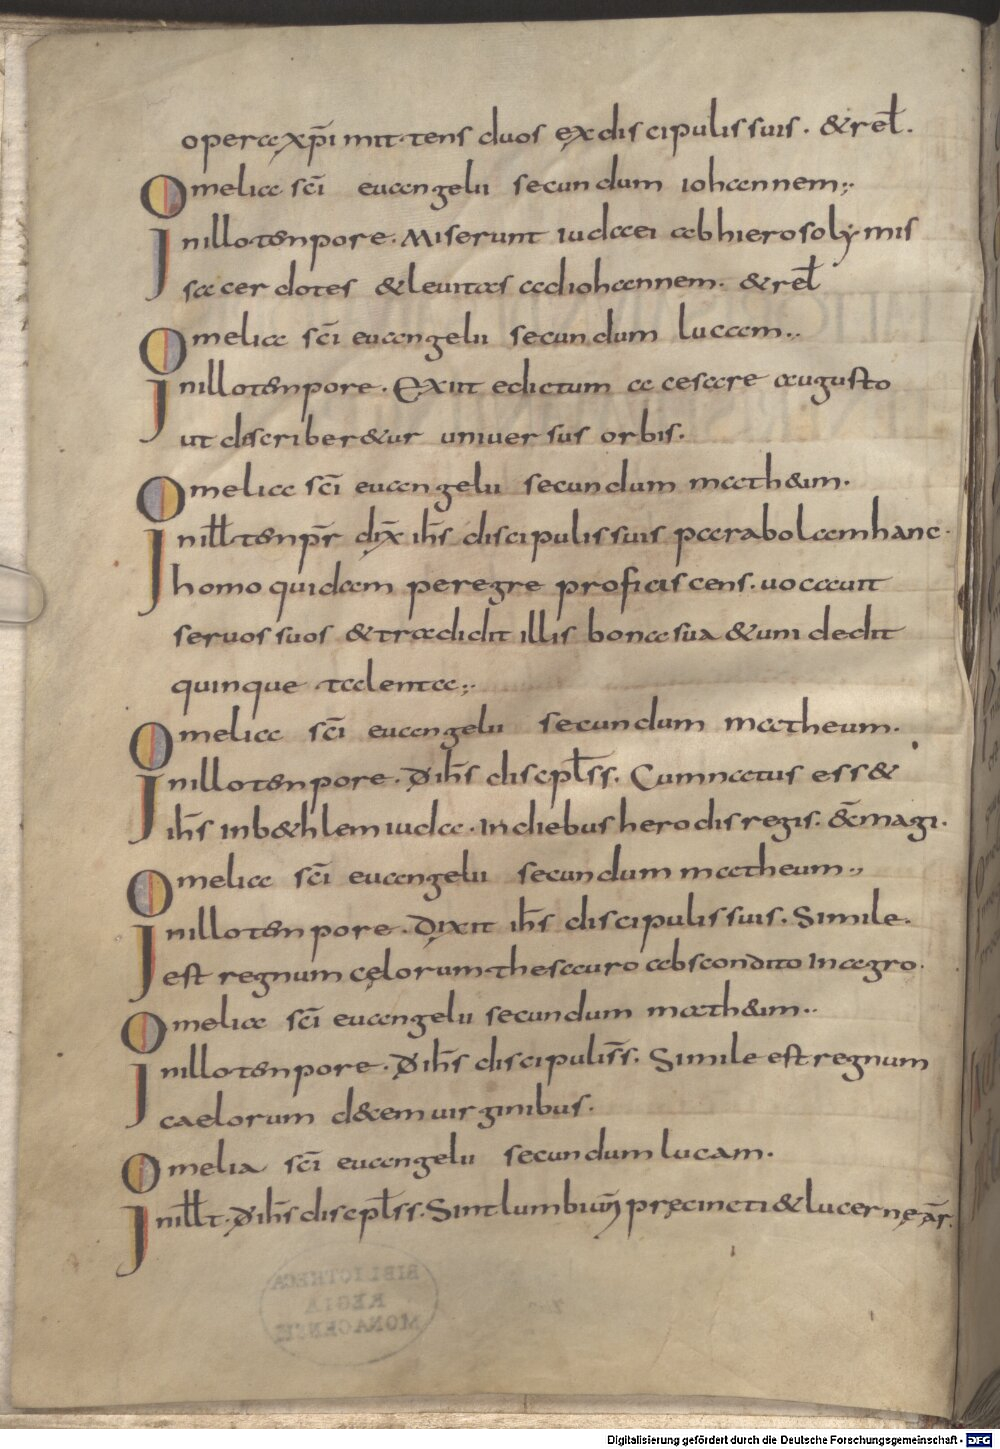 opera xp̄i mittens duos ex discipulis suis. &rel̄.
Omelia sc̄i euangelii secundum iohannem;,
Inillotempore. Miserunt iudaei abhierosolymis
sacerdotes &leuitas adiohannem. &rel̄
Omelia sc̄i euangelii secundum lucam..
Inillotempore. Exiit edictum a cesare augusto
ut describer&ur uniuersus orbis.
Omelia sc̄i euangelii secundum math&um.
Inill̄ temp̄r dix̄ ih̄s discipulis suis parabolam hanc.
homo quidam peregre proficiscens. uocauit
seruos suos &tradidit illis bona sua &uni dedit
quinque talenta;,
Omelia sc̄i euangelii secundum matheum.
Inillotempore. D̄ ih̄s discipl̄ss. Cumnatus ess&
ih̄s inb&hlem iudae. Indiebus herodis regis. &̄magi.
Omelia sc̄i euangelii secundum matheum.,
Inillotempore. Dixit ih̄s discipulis suis. Simile.
est regnum cęlorum thesauro abscondito Inagro.
Omelia sc̄i euangelii secundum math&um..
Inillotempore. D̄ ih̄s discipulis̄s. Simile est regnum
caelorum d&cem uirginibus.
Omelia sc̄i euangelii secundum lucam.
Inill̄t. D̄ ih̄s discpl̄ss. Sint lumbi uri pręcincti &lucernęar̄.
BIBLIOTHECA
REGIA
MONACENSIS
Digitalisierung gefördert durch die Deutsche Forschungsgemeinschaft - DFG